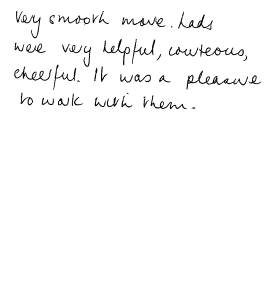 Very smooth move. Lads
were very helpful, courteous,
cheerful. It was a pleasure
to work with them.